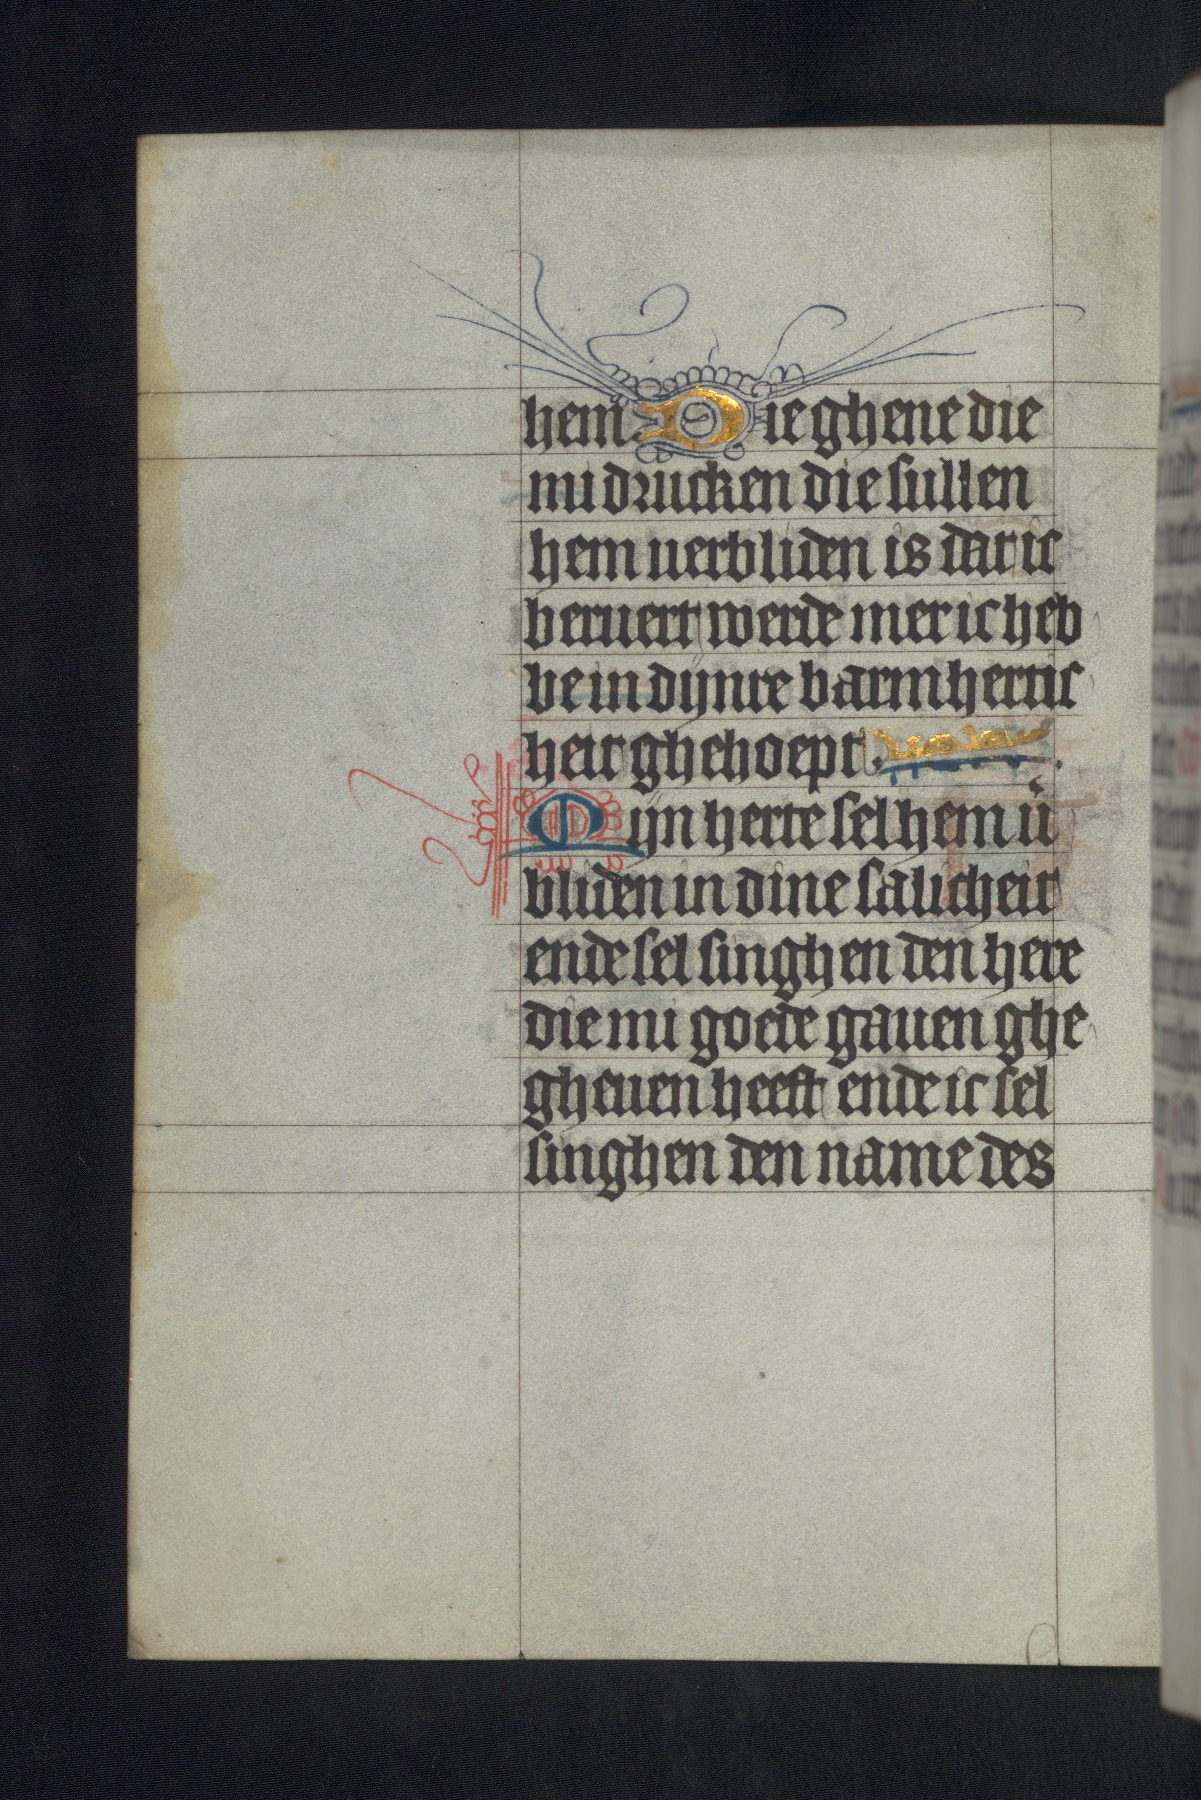 hem. Die ghene die
mi drucken die sullen
hem uerbliden is dat ic
beruert werde mer ic heb
be in dijnre barmhertic
heit ghehoept.
Mijn herte sel hem u͛
bliden in dine salicheit
ende sel singhen den here
die mi goede gauen ghe
gheuen heeft ende ic sel
singhen den name des